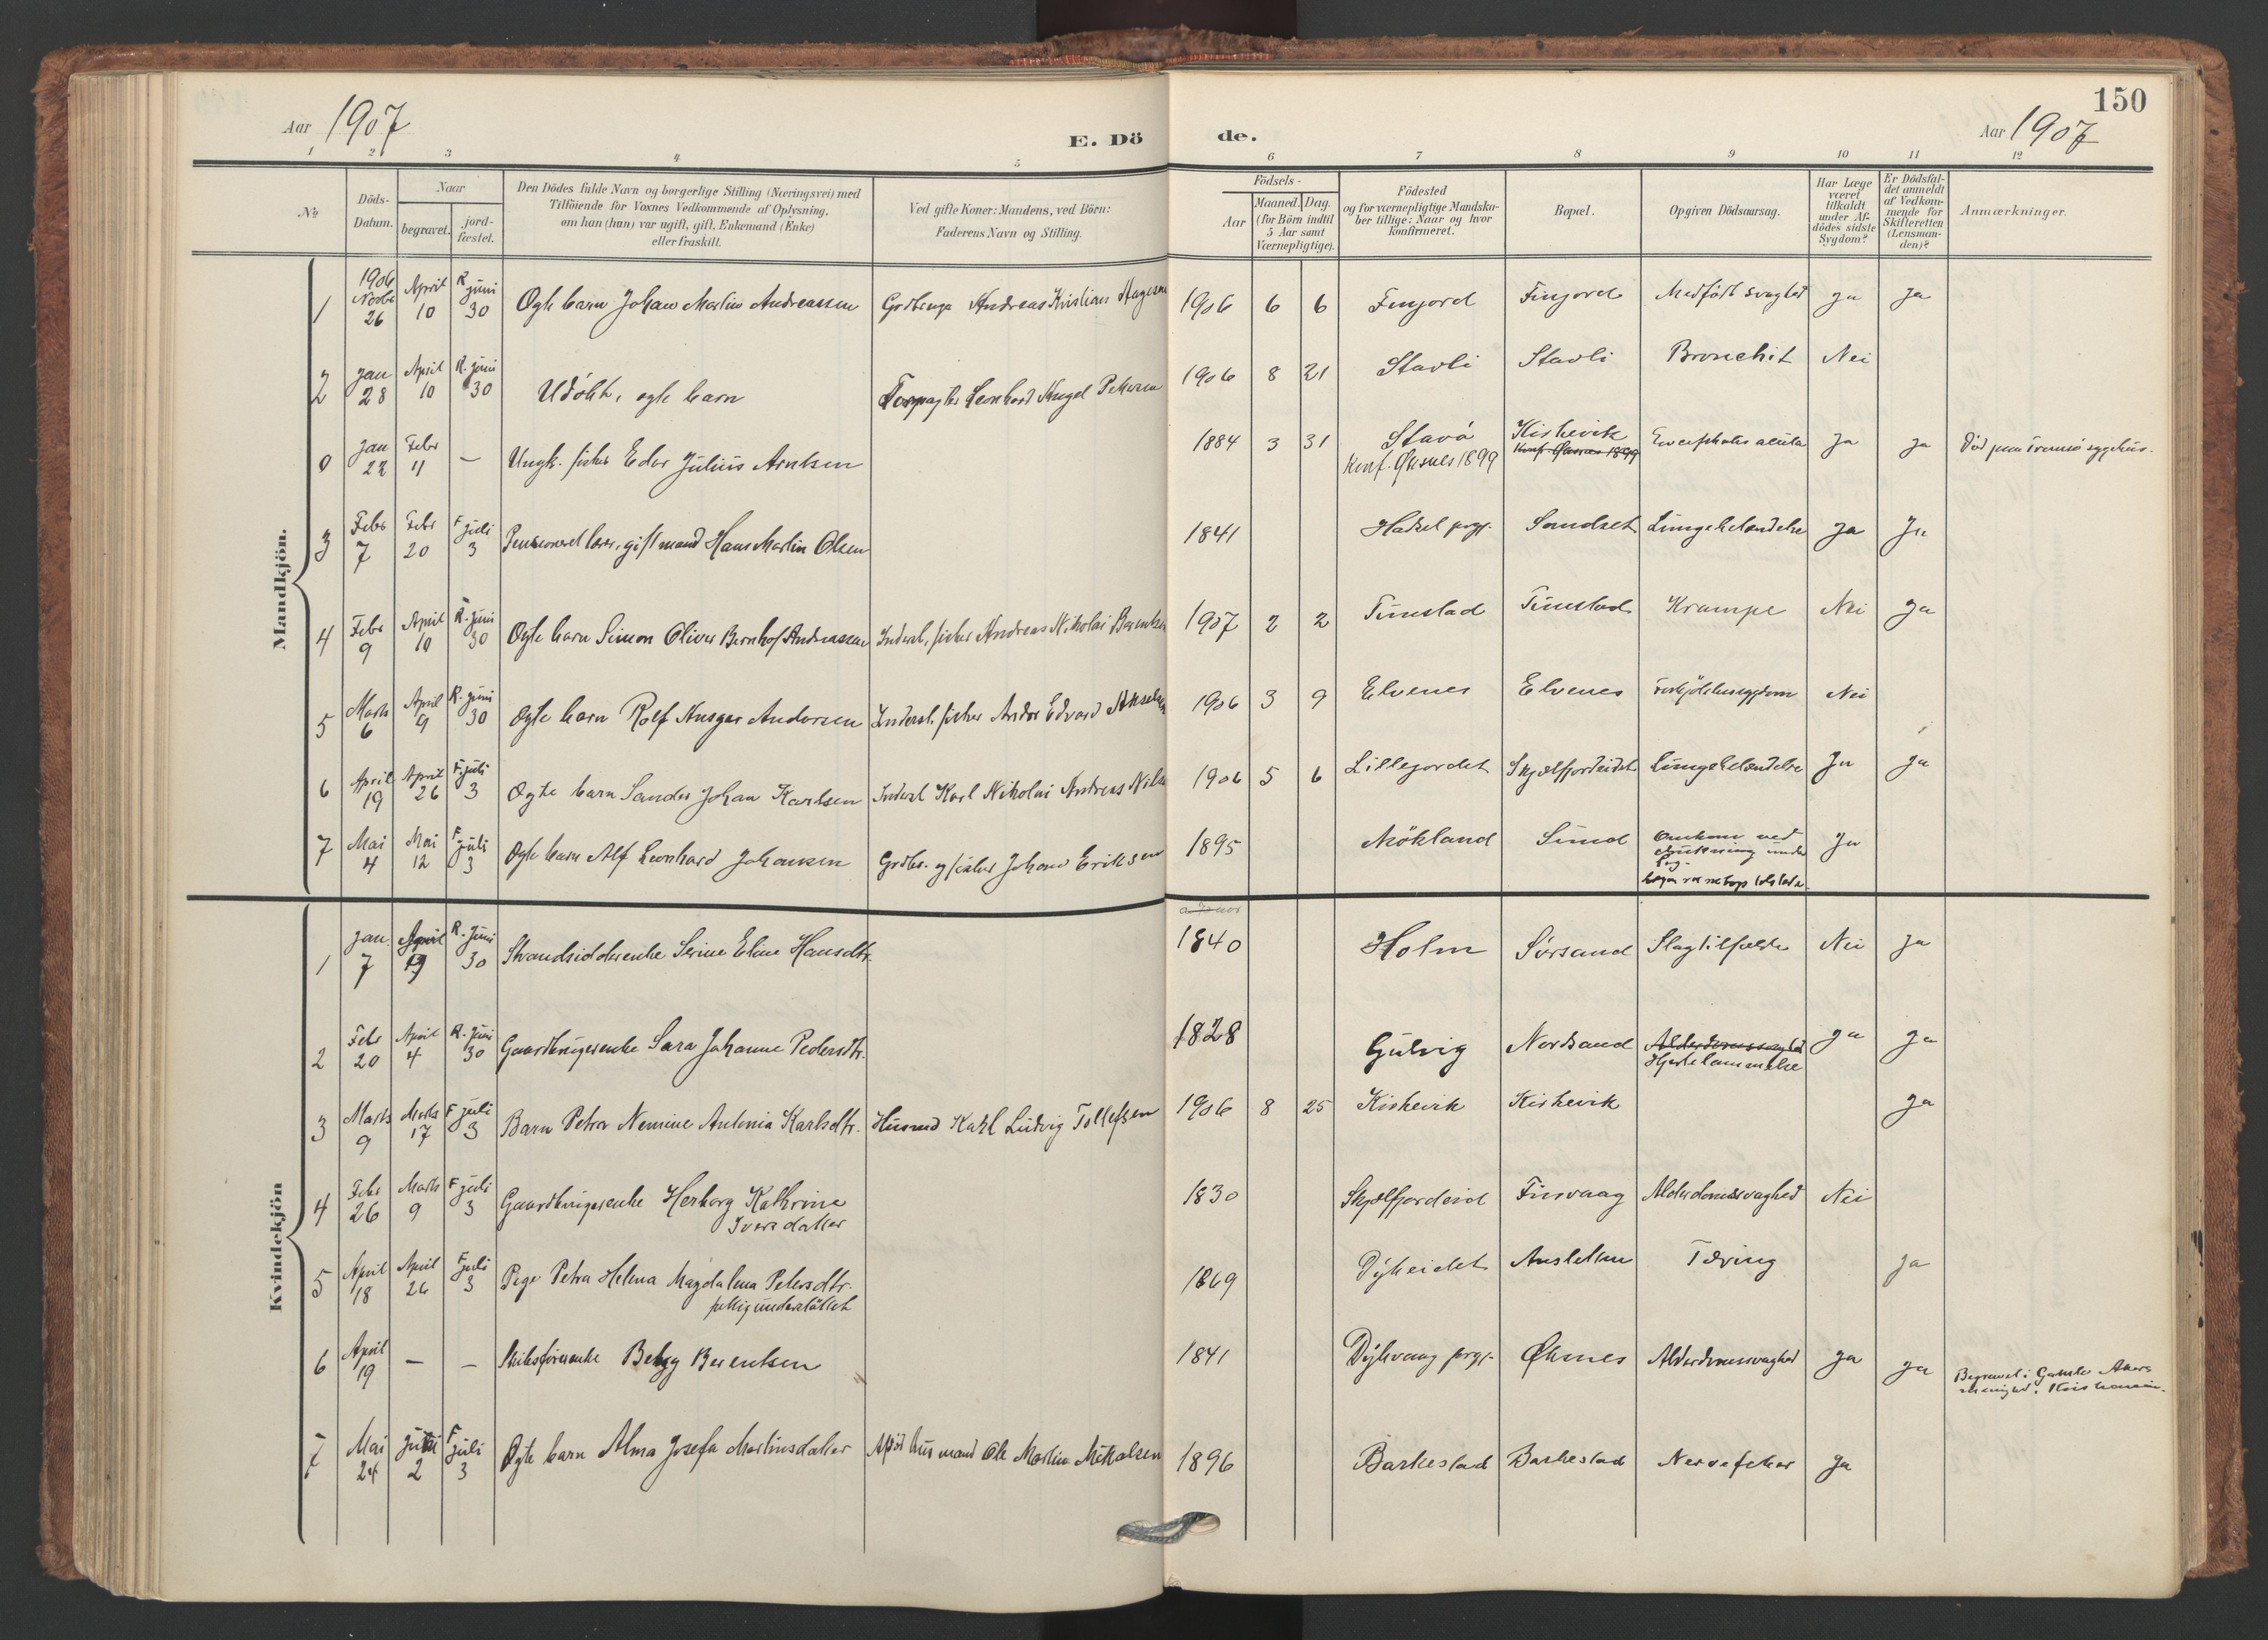 150
Aar 1907
E. Dö
de.
Aar 1907
1 2 3 4 5 6 7 8 9 10 11 12
№
Döds-
Datum.
Naar
begravet.
jord-
fæstet.
Den Dödes fulde Navn og borgerlige Stilling (Næringsvei) med
Tilföiende for Voxnes Vedkommende af Oplysning,
om han (hun) var ugift, gift, Enkemand (Enke)
eller fraskilt.
Ved gifte Koner: Mandens, ved Börn:
Faderens Navn og Stilling.
Födsels-
Aar
Maaned. Dag.
(for Börn indtil
5 Aar samt
Værnepligtige).
Födested
og for værnepligtige Mandska-
ber tillige: Naar og hvor
konfirmeret.
Bopæl.
Opgiven Dödsaarsag.
Har Læge
været
tilkaldt
under Af-
dödes sidste
Sygdom?
Er Dödsfal-
det anmeldt
af Vedkom-
mende for
Skifteretten
(Lensman-
den)?
Anmærkninger.
Mandkjön.
1 1906 Novbr 26 April 10 R. juni 30 Ægte barn Johan Martin Andreassen Andreas Kristian 1906 6 6 Finjord Finjord Medfödt svaghed ja ja
2 Jan 28 April 10 R. juni 30 Udöbt, ægte barn Leonhard 1906 8 21 Stavli Stavli Bronchit Nei
0 Jan 22 Febr 11 — Ungk. fisker Edor Julius Arntsen 1884 3 31 Stavå Kiskevik ja ja Död paa Tromsö sygehus.
Konf. Øksnes 1899 Konf. Øksnes 1899
3 Febr 7 Febr 20 F juli 3 Pensioneret lærer, gift mand Hans Martin Olsen 1841 Hadsel prgj. Sandset Lungebetændelse ja Ja
4 Febr 9 April 10 R. juni 30 Ægte barn Simon Oliver Bernhof Andreassen Inderst, fisker Andreas Nikolai 1907 2 2 Tunstad Tunstad Krampe Nei ja
5 Marts 6 April 9 R. juni 30 Ægte barn Rolf Ansgar Andorsen Inderst, fisker Andor Edvard 1906 3 9 Elvenes Elvenes Nei
6 April 19 April 26 F. juli 3 Ægte barn Sander Johan Karlsen Inderst Karl Nikolai Andreas 1906 5 6 Lillejordet Skjælfjordeidet Lungebetændelse Ja ja
7 Mai 4 Mai 12 F juli 3 Ægte barn Alf Leonhard Johansen Grdbr. og fisker Johan Eriksen 1895 Nökland Sund Omkom ved
under
Ja
Kvindekjön
1 Jan 7 April 9 R. Juni 30 Strandsidderenke Serine Eline Hansdtr. 1840 Holm Sörsand Slagtilfælde Nei ja
2 Febr 20 April 4 R. juni 30 Gaardbrugerenke Sara Johanne Pedersdtr. 1828 Gulvig Nordsand Alderdomssvaghed ja ja
Hjertelammelse
3 Marts 9 Marts 17 F juli 3 Barn Petra Nemine Antonia Karlsdtr. Husmd Karl Ludvig Tollefsen 1906 8 25 Kiskevik Kiskevik ja
4 Febr 26 Marts 9 F juli 3 Gaardbrugerenke Herborg Kathrine 1830 Skjælfjordeid Finvaag Alderdomssvaghed Nei
Iversdatter
5 April 18 April 26 F juli 3 Pige Petra Helena Magdalena Petersdtr. 1869 Dypeidet Tæring ja
fattigunderstöttet
6 April 19 — — Skibsförerenke Betzy Berentsen 1841 Dypvaag prgj. Øksnes Alderdomssvaghed ja ja Begravet i Gamle Akers
menighed, Kristiania.
7 Mai 24 juni 2 F juli 3 Ægte barn Alma Josefa Martinsdatter husmand Ole Martin Mikalsen 1896 Barkestad Barkestad Nervefeber ja